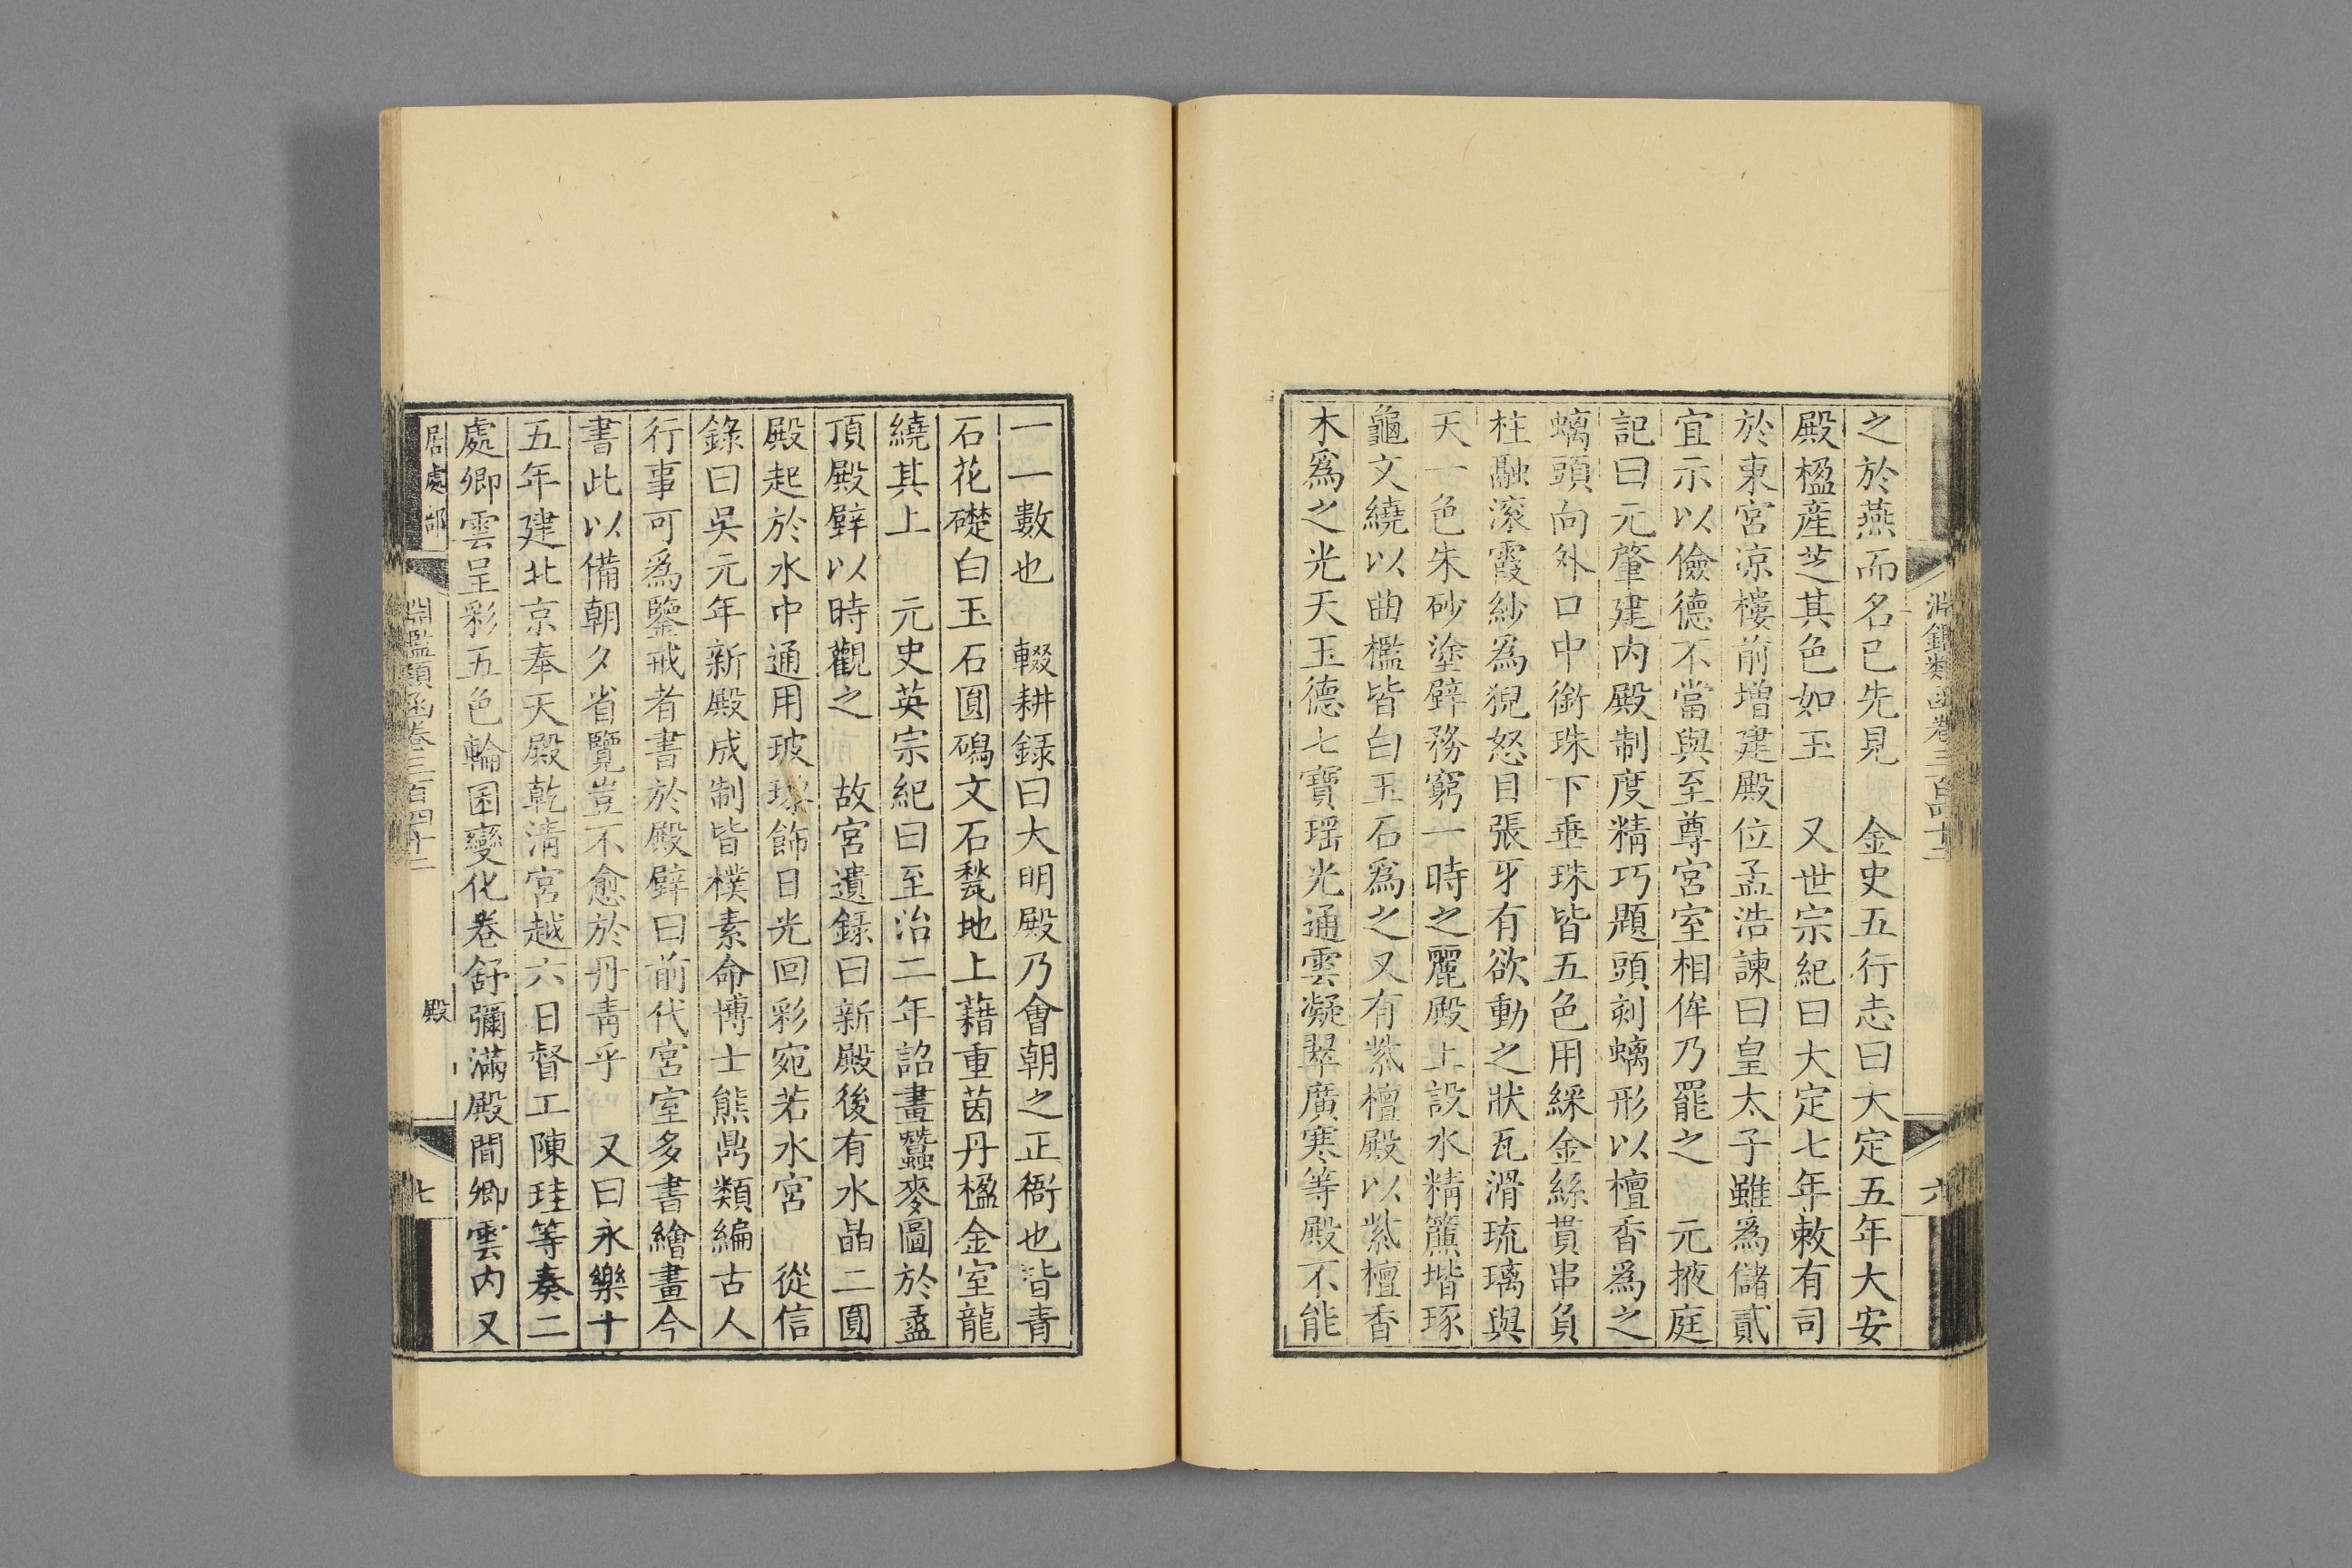 淵鑑類函卷三百四十二
六
之於燕而名已先見　金史五行志曰大定五年大安
殿楹産芝其色如玉　又世宗紀曰大定七年敕有司
於東宮凉樓前增建殿位孟浩諫曰皇太子雖爲儲貳
宜示以儉德不當與至尊宮室相侔乃罷之　元掖庭
記曰元肇建内殿制度精巧題頭刻螭形以檀香爲之
螭頭向外口中銜珠下垂珠皆五色用綵金絲貫串負
柱融滚霞紗爲猊怒目張牙有欲動之狀瓦滑琉璃與
天一色朱砂塗壁務窮一時之麗殿上設水精簾堦琢
龜文繞以曲檻皆白玉石爲之又有紫檀殿以紫檀香
木爲之光天玉德七寶瑶光通雲凝翠廣寒等殿不能
一一數也　輟耕録曰大明殿乃會朝之正衙也皆青
石花礎白玉石圓磶文石甃地上藉重茵丹楹金室龍
繞其上　元史英宗紀曰至治二年詔畫蠶麥圖於盝
頂殿壁以時觀之　故宮遺録曰新殿後有水晶二圓
殿起於水中通用玻璃飾日光回彩宛若水宮　從信
錄曰吳元年新殿成制皆樸素命博士熊鼎類編古人
行事可爲鑒戒者書於殿壁曰前代宮室多書繪畫今
書此以備朝夕省覽豈不愈於丹青乎　又曰永樂十
五年建北京奉天殿乾清宮越六日督工陳珪等奏二
處卿雲呈彩五色輪囷變化卷舒彌滿殿間卿雲内又
居處部
淵鑑類函卷三百四十二
殿
七